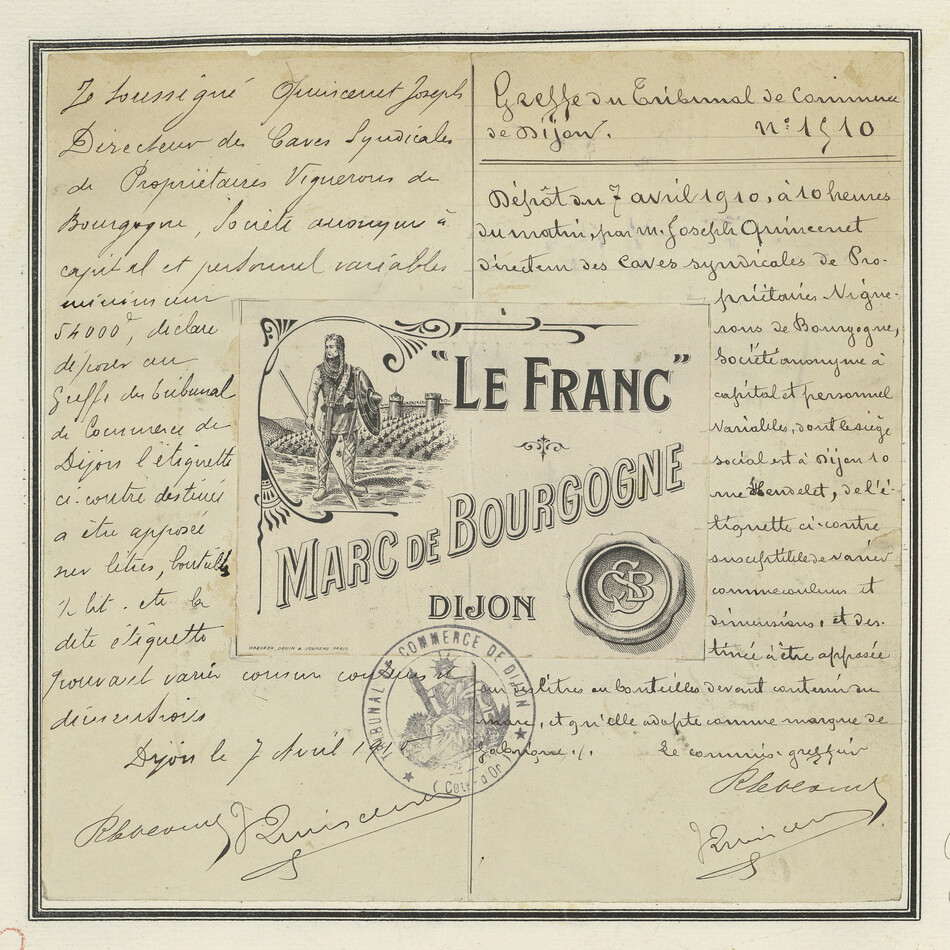 Je soussigné Quincenet Joseph
Directeur des Caves Syndicales
de Propriétaires Vignerons de
Bourgogne, Société anonyme à
capital et personnel variables
minimum
54000f, déclare
déposer au
Greffe du tribunal
de Commerce de
Dijon l'étiquette
ci-contre destinée
a être apposée
sur litres, bouteilles
½ lit. etc la
dite étiquette
pouvant varier comme couleurs et
dimensions
Dijon le 7 Avril 1910
Greffe du Tribunal de Commerce
de Dijon.
n° 1510
Dépôt du 7 avril 1910, à 10 heures
du matin, par M. Joseph Quincenet
directeur des Caves syndicales de Pro-
priétaires Vigne-
rons de Bourgogne,
Société anonyme à
capital et personnel
variables, dont le siège
social est à Dijon 10
rue de l'é-
tiquette ci-contre
susceptible de varier
comme couleurs et
dimensions, et des-
tinée à être apposée
sur des litres ou bouteilles devant contenir du
marc, et qu'elle adopte comme marque de
fabrique ./.
Le commis-greffier
"LE FRANC"
MARC DE BOURGOGNE
DIJON
CSB
TRIBUNAL DE COMMERCE DE DIJON
(Côte-d'Or)